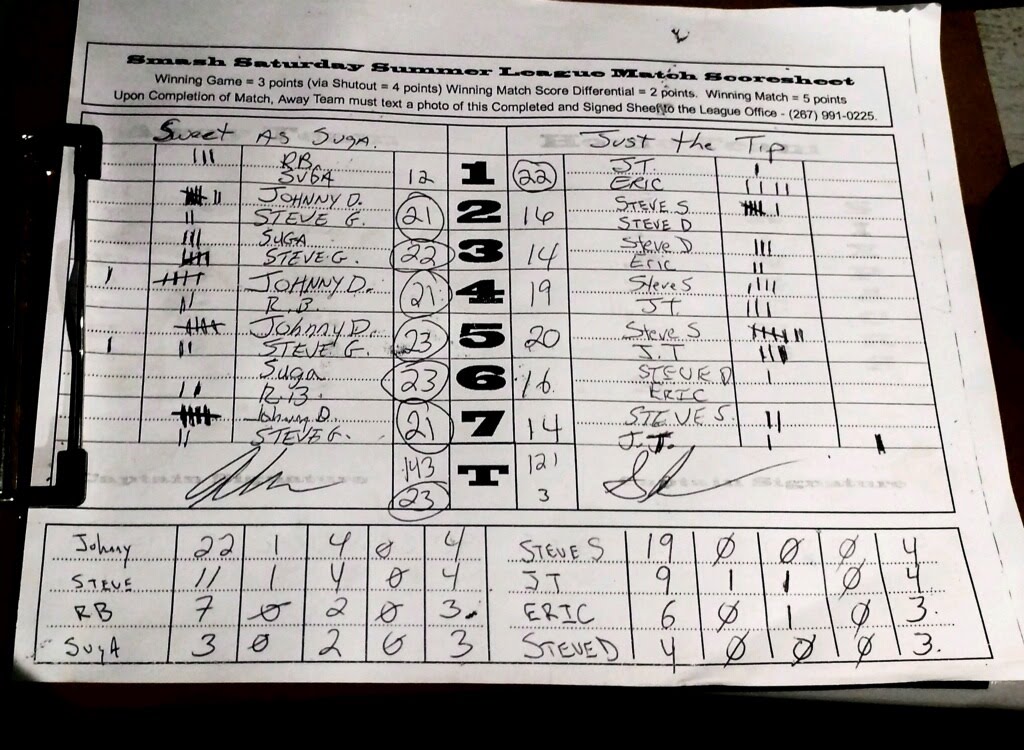 Smash Saturday Summer League Match Scoresheet
Winning Game = 3 points (via Shutout = 4 points) Winning Match Score Differential = 2 points. Winning Match = 5 points
Upon Completion of Match, Away Team must text a photo of this Completed and Signed Sheet to the League Office - (267) 991-0225.
Sweet As Suga. Just the Tip
RB. JT
SUGA 12 1 22 ERIC
JOHNNY D. STEVE S
STEVE G. 21 2 16 STEVE D
SUGA Steve D
STEVE G. 22 3 14 Eric
JOHNNY D. Steve S
R.B. 21 4 19 JT.
Johnny D. Steve S
STEVE G. 23 5 20 J.T
Suga STEVE D
R.B. 23 6 16 ERIC
Johnny D. STEVE S.
STEVE G. 21 7 14 J.T.
143 T 121
23 3
Captain Signature Captain Signature
Johnny 22 1 4 0 4 STEVE S 19 0 0 0 4
STEVE 11 1 4 0 4 JT 9 1 1 0 4
RB 7 0 2 0 3. ERIC 6 0 1 0 3.
SugA 3 0 2 0 3 STEVE D 4 0 0 0 3.